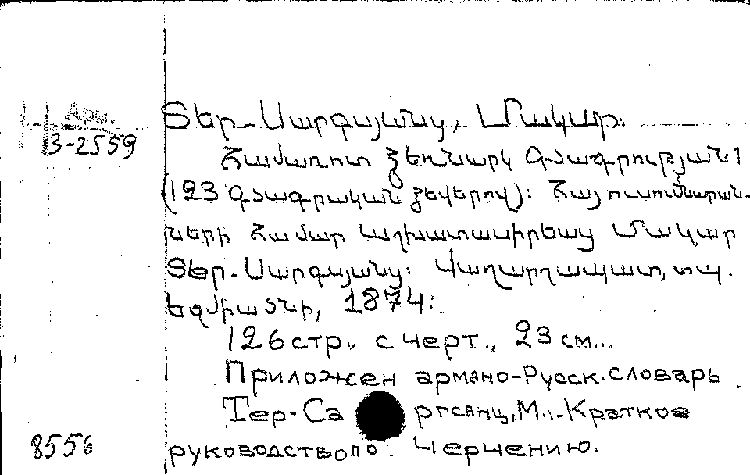 Арм.
3-2559
Տեր-Սարգսյանց, Մակար.
Համառոտ ձեռնարկ գծագրության
(123 գծագրական ձևերով): Հայ ուսումնարան-
ների համար աշխատասիրեաց Մակար
Տեր-Սարգսյանց: Վաղարշապատ, տպ.
Եջմիածնի, 1874:
126 стр. с черт., 23 см...
Приложен армяно-Русск. словарь
Тер-Са ргсянц, М.. - Краткое
руководство по черчению.
8556